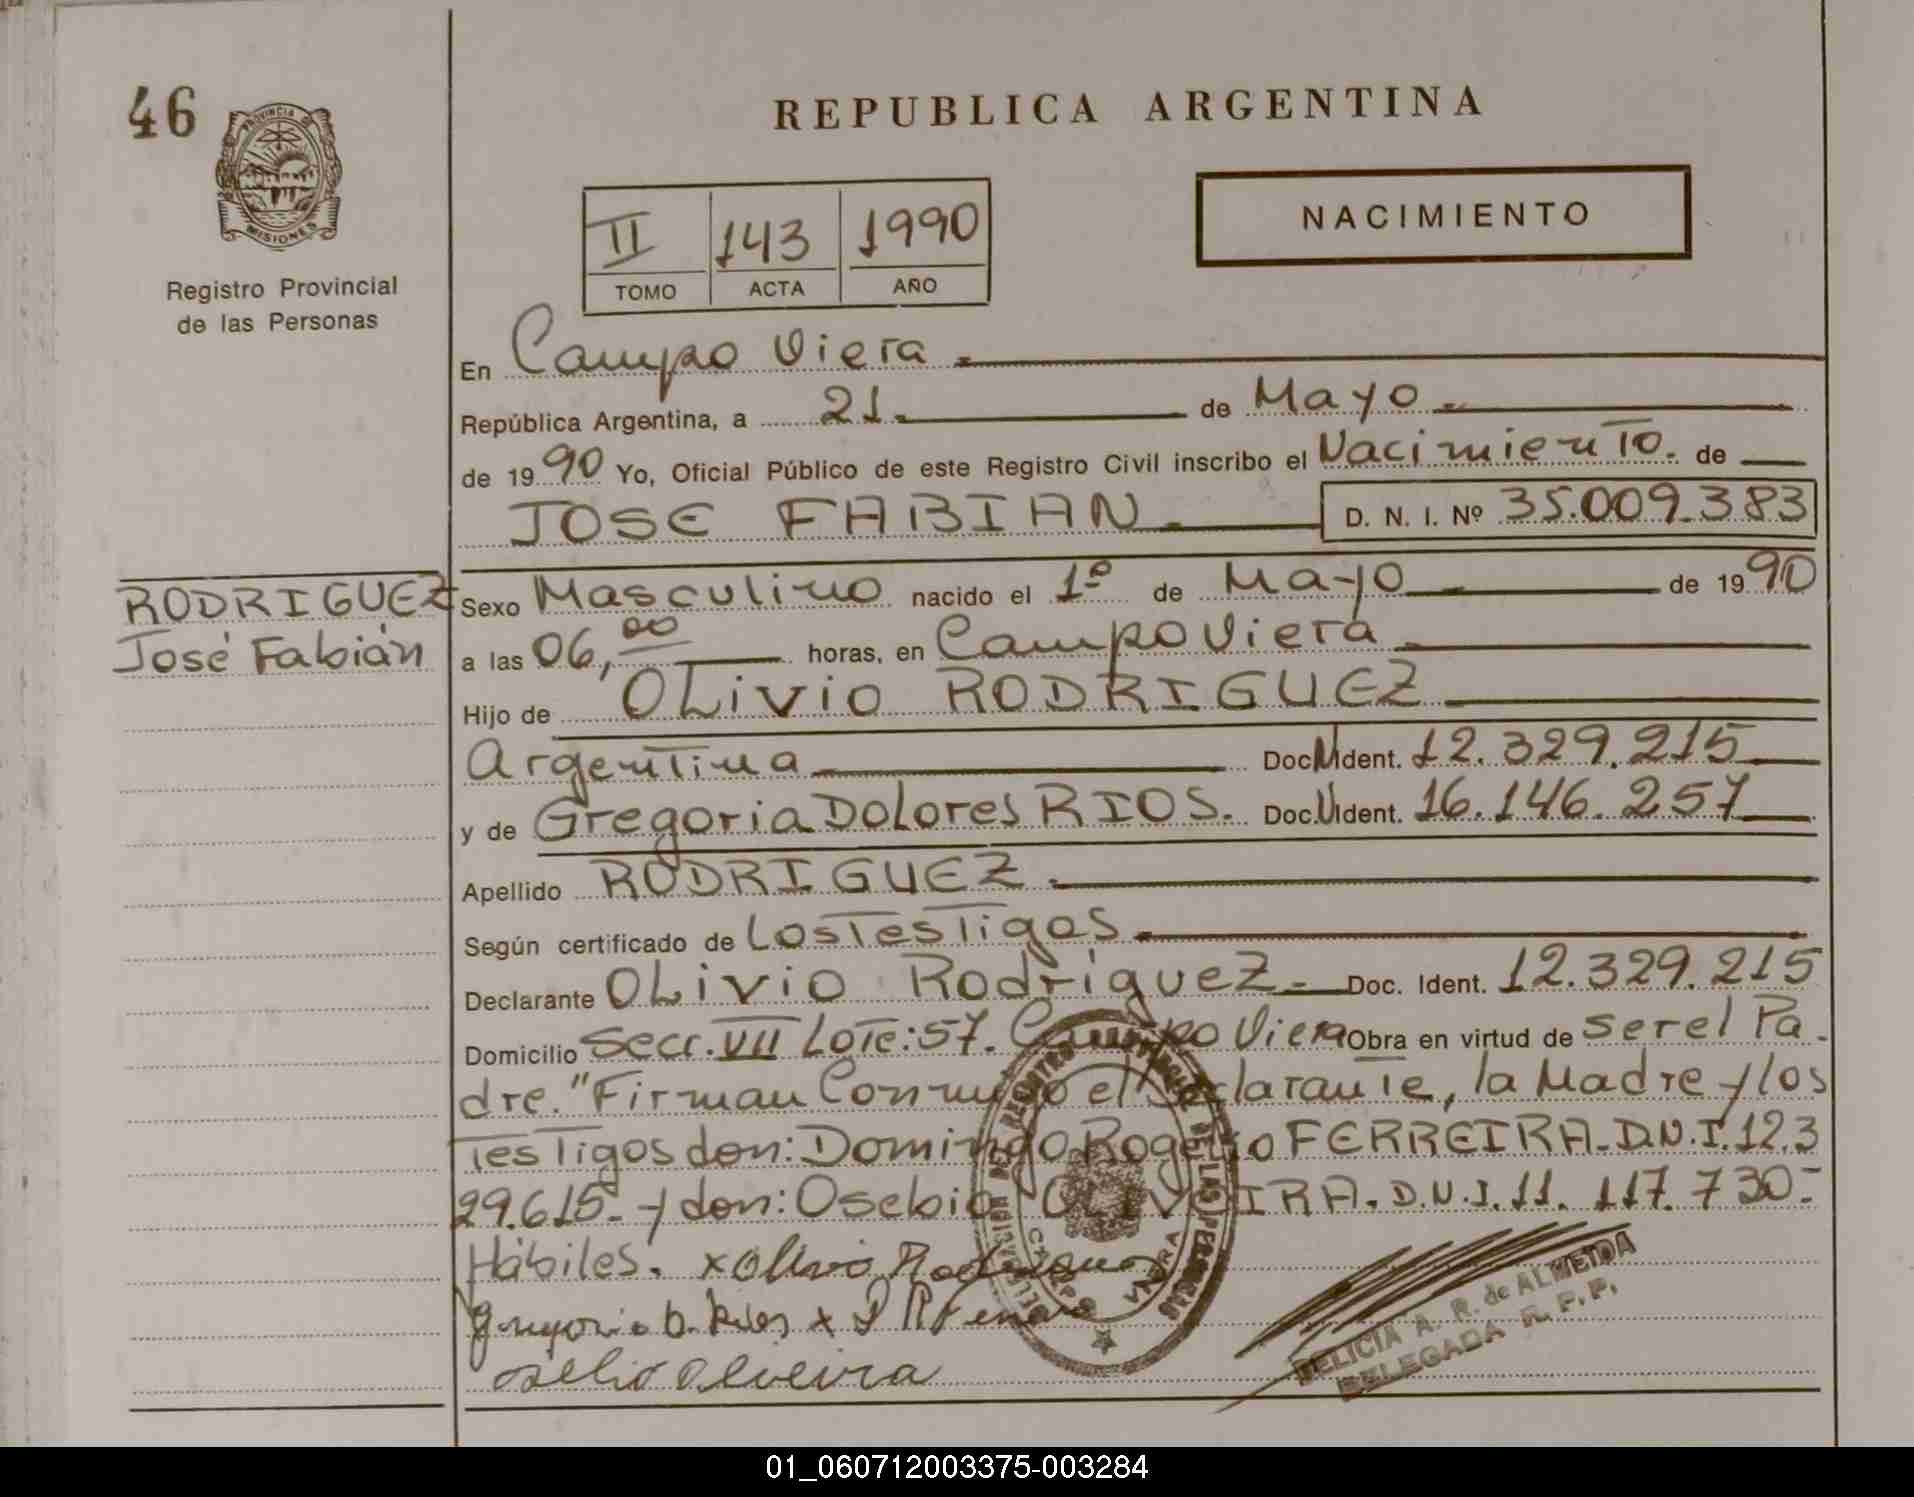 46
PROVINCIA DE
MISIONES
Registro Provincial
de las Personas
REPUBLICA ARGENTINA
II 143 1990
TOMO ACTA AÑO
NACIMIENTO
En Campo Viera.
República Argentina, a 21. de Mayo.
de 1990 Yo, Oficial Público de este Registro Civil inscribo el Nacimiento. de
JOSE FABIAN. D. N. I. Nº 35.009.383
RODRIGUEZ
José Fabián
Sexo Masculino nacido el 1º de Mayo de 1990
a las 06,00 horas, en Campo Viera.
Hijo de OLIVIO RODRIGUEZ
Argentina Doc.N.Ident. 12.329.215
y de Gregoria Dolores RIOS. Doc.U.Ident. 16.146.257
Apellido RODRIGUEZ.
Según certificado de Los Testigos.
Declarante OLIVIO RodrigueZ. Doc. Ident. 12.329.215
Domicilio Secc. VII Lote: 57. Campo Viera Obra en virtud de ser el Pa-
dre." Firman Conmigo el Declarante, la Madre y los
Testigos don: Domingo Rogelio FERREIRA. D.N.I. 12.3
29.615.- y don: Osebio OLIVEIRA. D.N.I. 11.117.730.-
Hábiles. x Olivio Rodriguez
Gregoria D. Rios x D R Ferreira
Osebio Oliveira
DELEGACION DEL REGISTRO PROVINCIAL DE LAS PERSONAS
CAMPO VIERA
DELICIA A. R. de ALMEIDA
DELEGADA R. P. P.
01_060712003375-003284